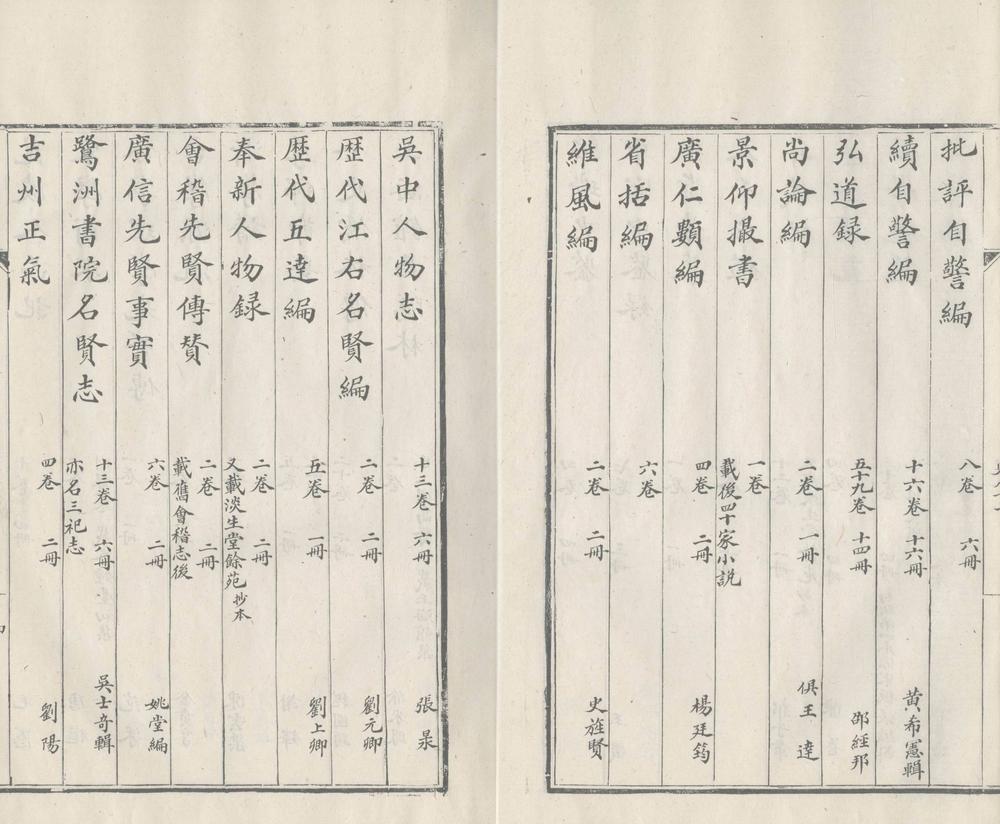 批評自警編 八卷 六冊
續自警編 十六卷 十六冊 黃希憲輯
弘道録 五十九卷 十四冊 邵經邦
尚論編 二卷 一冊 俱王達
景仰撮書 一卷 載後四十家小説
廣仁類編 四卷 二冊 楊廷筠
省括編 六卷
維風編 二卷 二冊 史旌賢
吳中人物志 十三卷 六冊 張㫤
歴代江右名賢編 二卷 二冊 劉元卿
歴代五達編 五卷 一冊 劉上卿
奉新人物録 二卷 二冊 又載淡生堂餘苑抄本
會稽先賢傳贊 二卷 二冊 載舊會稽志後
廣信先賢事實 六卷 二冊 姚堂編
鷺洲書院名賢志 十三卷 六冊 亦名三祀志 吳士奇輯
吉州正氣 四卷 二冊 劉陽